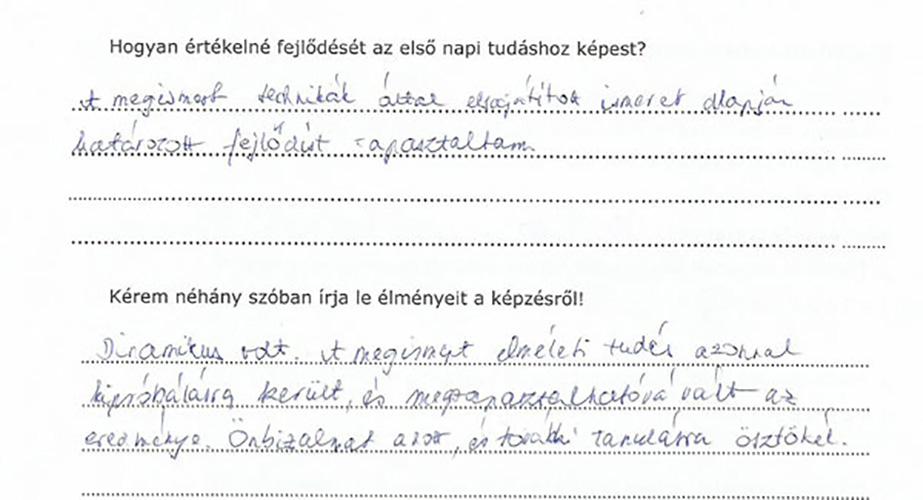 Hogyan értékelné fejlődését az első napi tudáshoz képest?
A megismert technikák által elsajátított ismeret alapján
határozott fejlődést tapasztaltam
Kérem néhány szóban írja le élményeit a képzésről!
Dinamikus volt. A megismert elméleti tudás azonnal
kipróbálásra került, és megtapasztalhatóvá vált az
eredménye. Önbizalmat adott, és további tanulásra ösztökél.